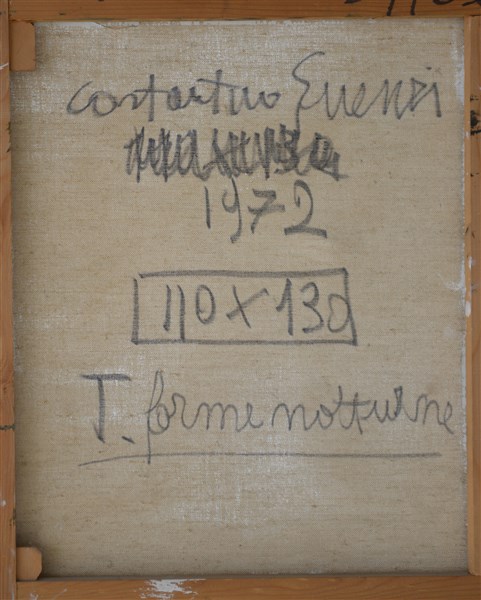 Costantino Guenzi
1972
110 X 130
T. forme notturne